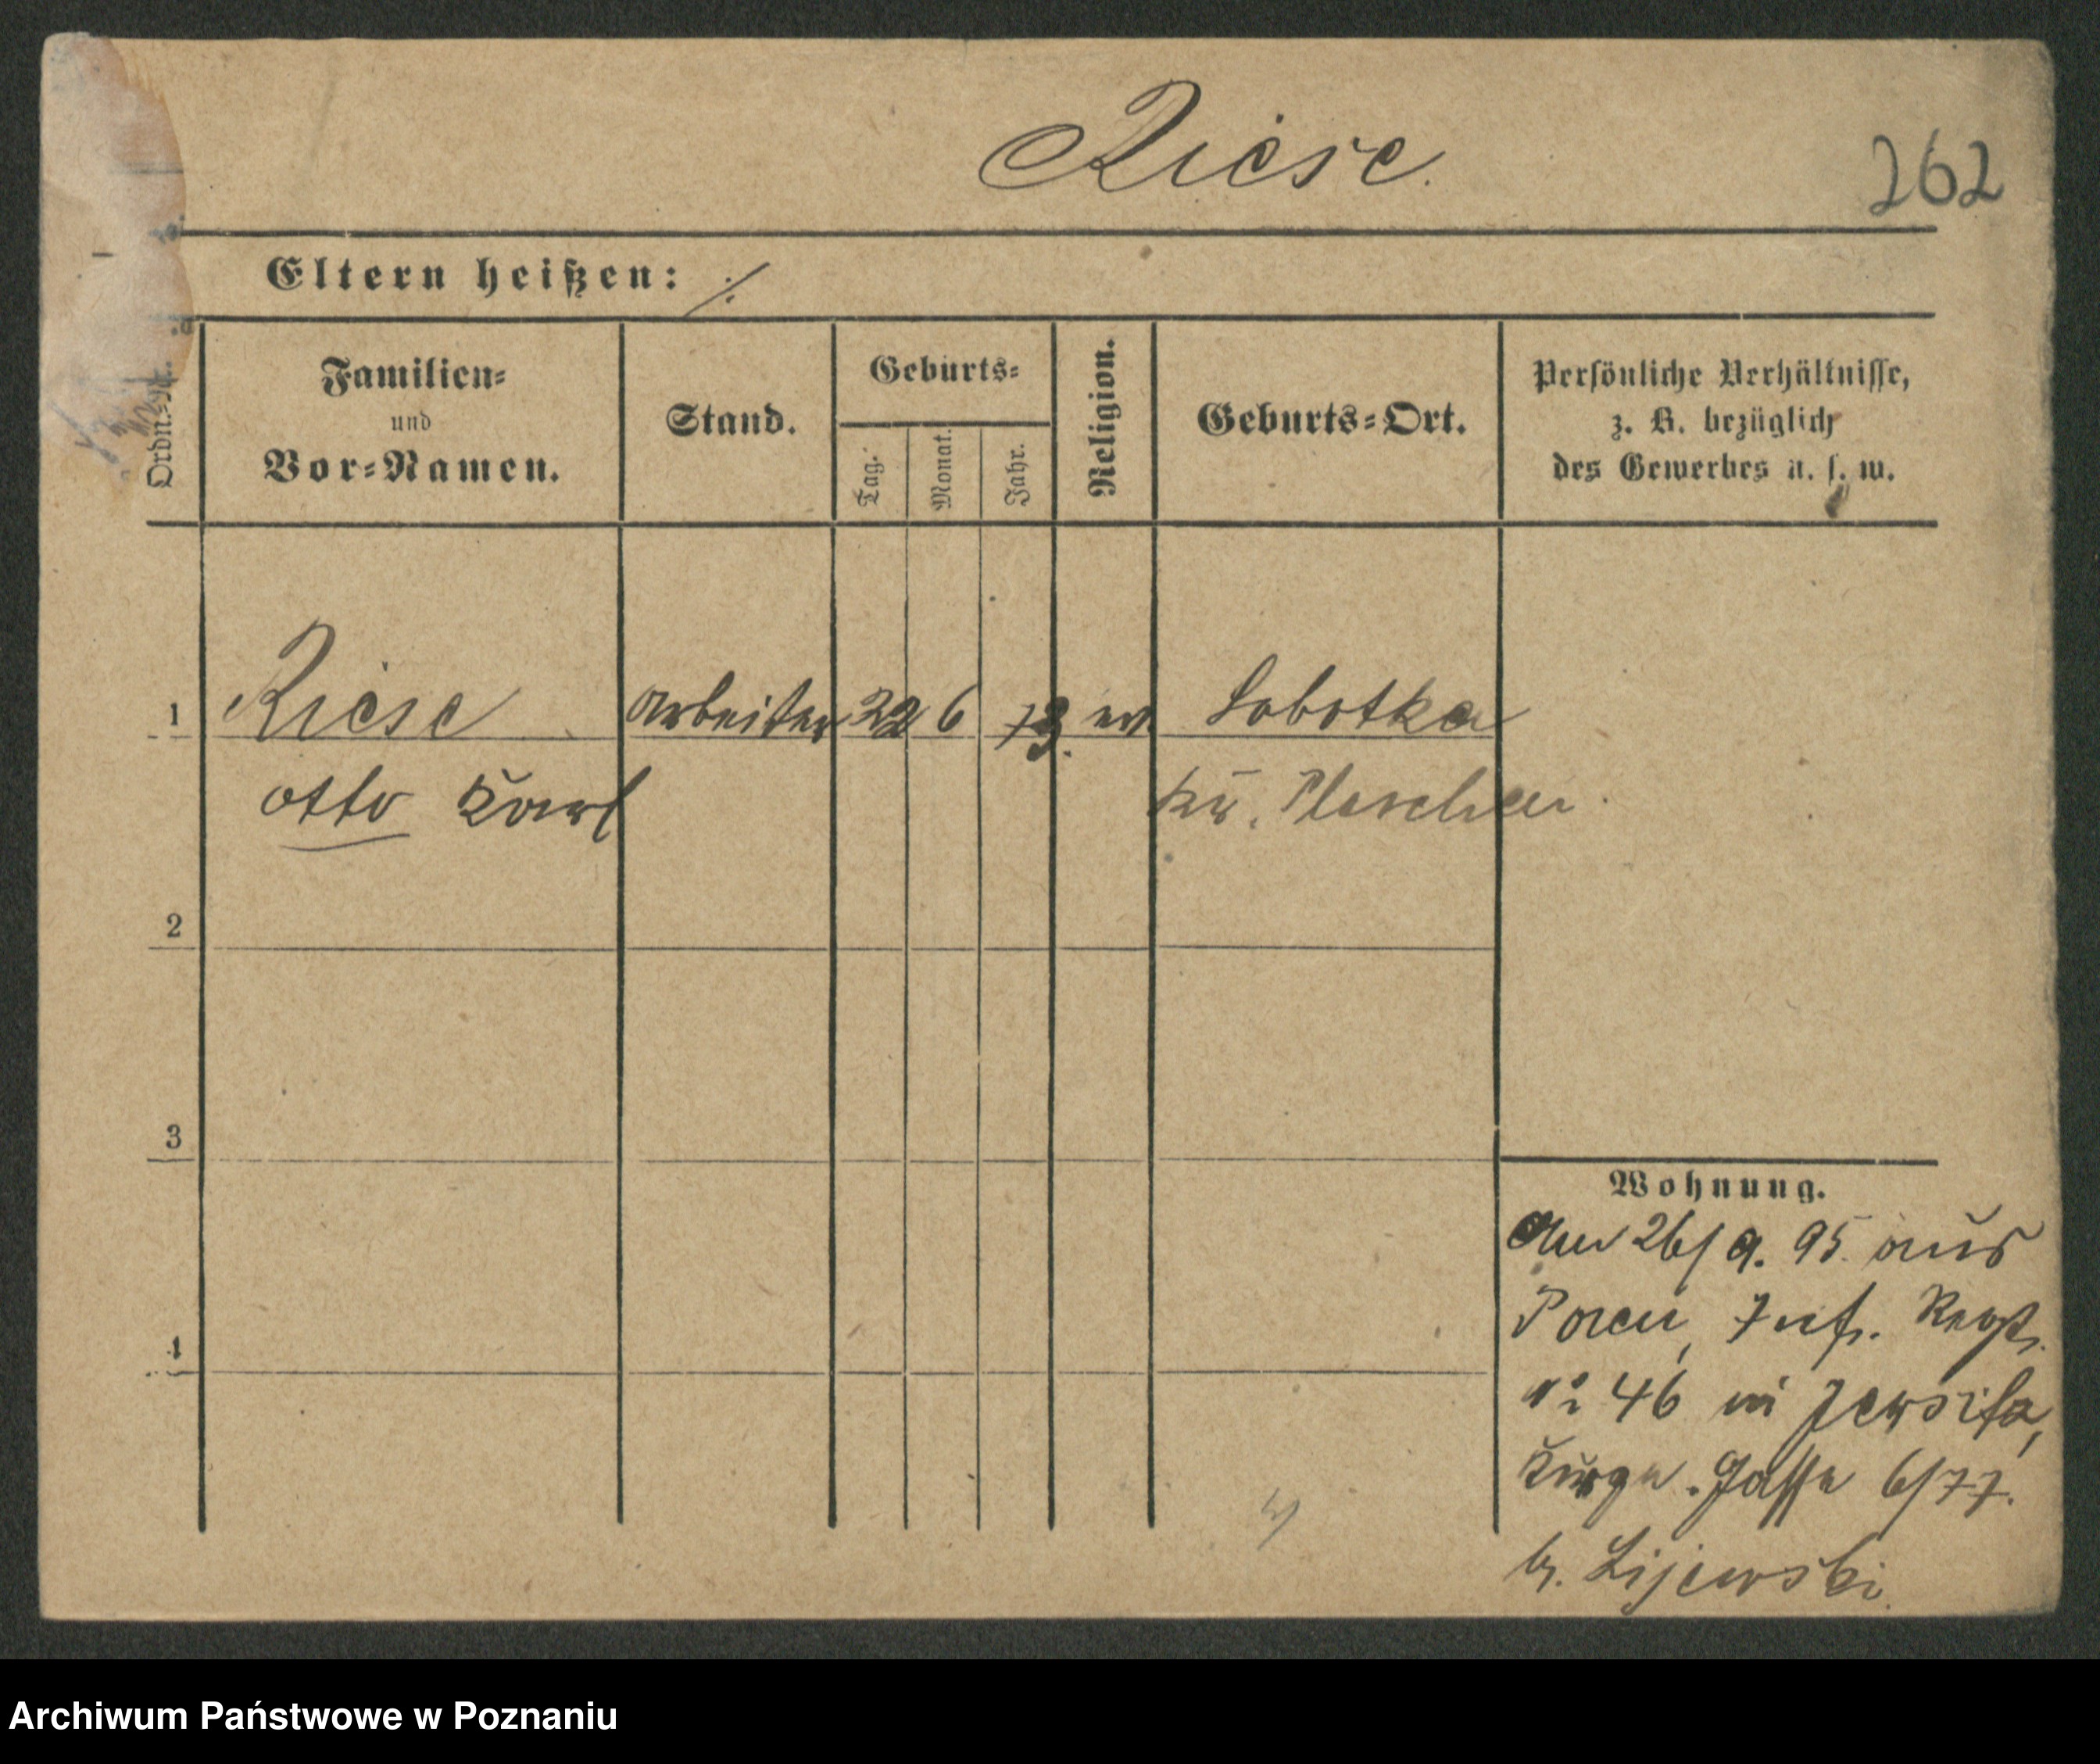 Riese.
262
Eltern heißen: ./.
Ordn.-Nr.
Familien-
und
Vor-Namen.
Stand.
Geburts-
Tag.
Monat.
Jahr.
Religion.
Geburts-Ort.
Persönliche Verhältnisse,
z. B. bezüglich
des Gewerbes u. s. w.
1 Riese Arbeiter 22 6 73. ev. Sobotka
Otto Karl Kr. Pleschen
2
3
4
Wohnung.
Am 26/9. 95 aus
Posen, Inf. Regt.
No 46 in Jersitz,
Kurze Gasse 6/77.
b. Lijewski.
Archiwum Państwowe w Poznaniu